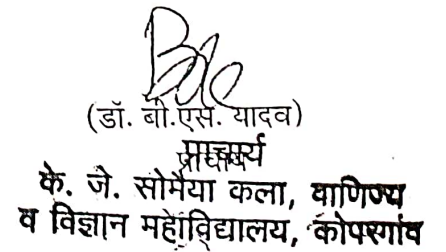 (डॉ. बी.एस. यादव)
प्राचार्य
के. जे. सोमैया कला, वाणिज्य
व विज्ञान महाविद्यालय, कोपरगांव